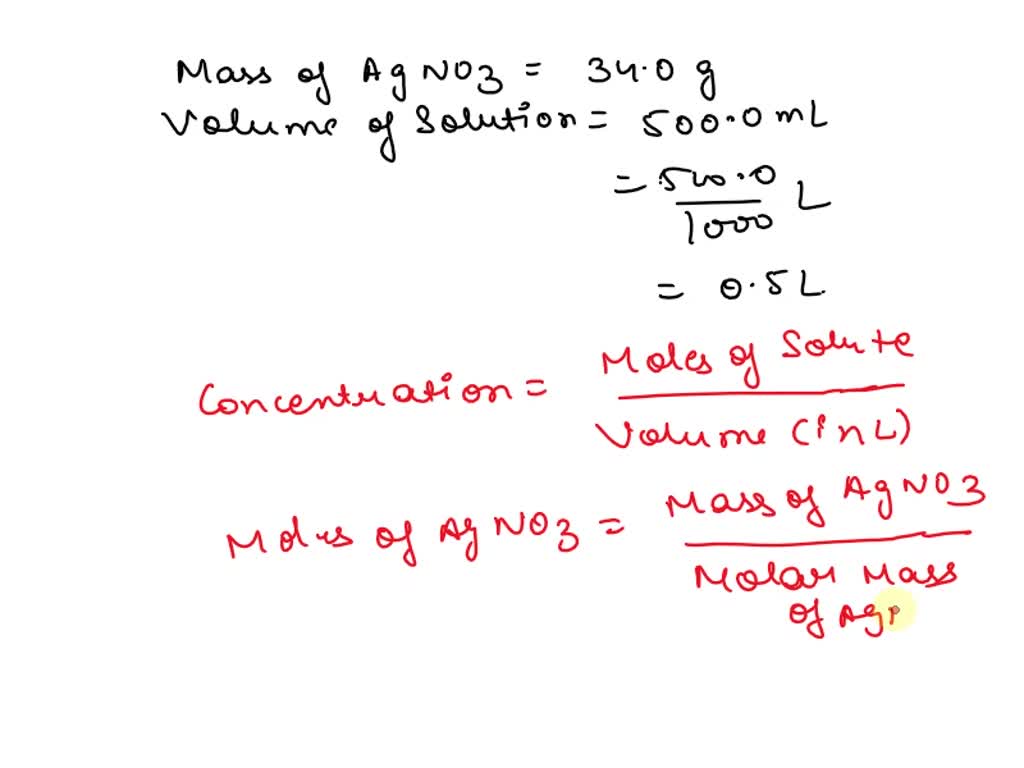 Mass of AgNO3 = 34.0 g
Volume of Solution = 500.0 mL
= 500.0 / 1000 L
= 0.5 L
Concentration = Moles of Solute / Volume (in L)
Moles of AgNO3 = Mass of AgNO3 / Molar Mass of Ag